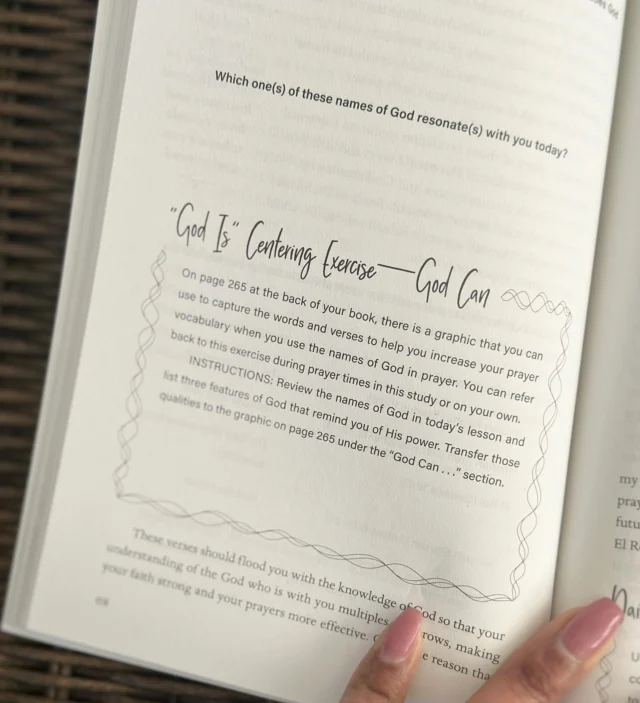 Which one(s) of these names of God resonate(s) with you today?
"God Is" Centering Exercise—God Can
On page 265 at the back of your book, there is a graphic that you can
use to capture the words and verses to help you increase your prayer
vocabulary when you use the names of God in prayer. You can refer
back to this exercise during prayer times in this study or on your own.
INSTRUCTIONS: Review the names of God in today's lesson and
list three features of God that remind you of His power. Transfer those
qualities to the graphic on page 265 under the "God Can . . ." section.
These verses should flood you with the knowledge of God so that your
understanding of the God who is with you multiples rows, making
your faith strong and your prayers more effective. reason tha
my
pray
futu
El R